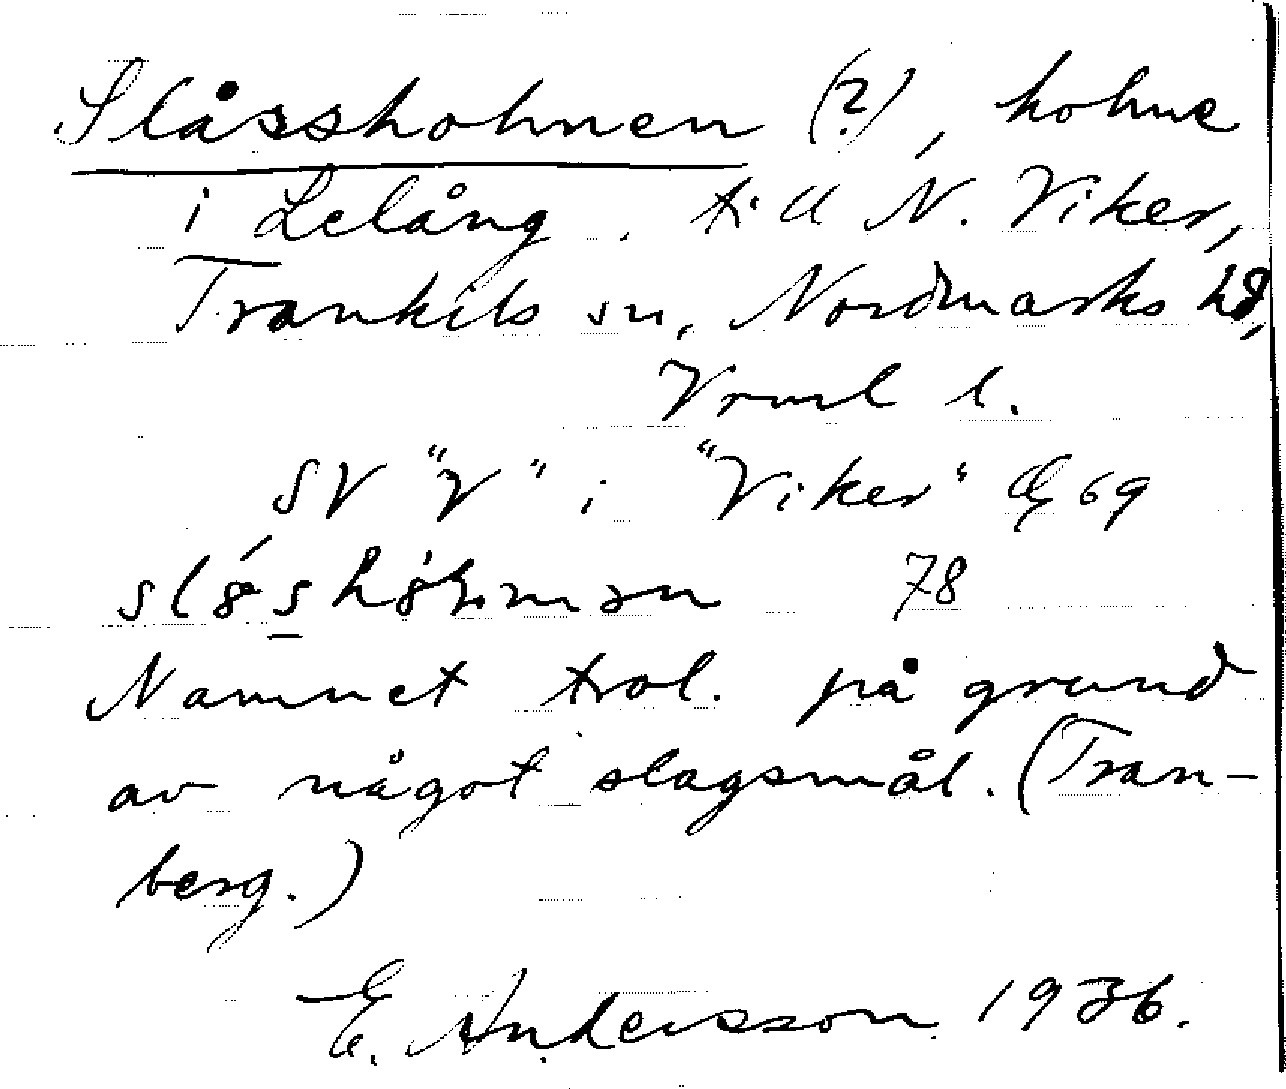 Slåssholmen (?), holme
i Lelång, till N. Viker,
Trankils sn, Nordmarks hd,
Vrml l.
SV "V" i "Viker" Œ 69
78
Namnet trol. på grund
av något slagsmål. (Tran-
berg.)
E. Andersson 1936.